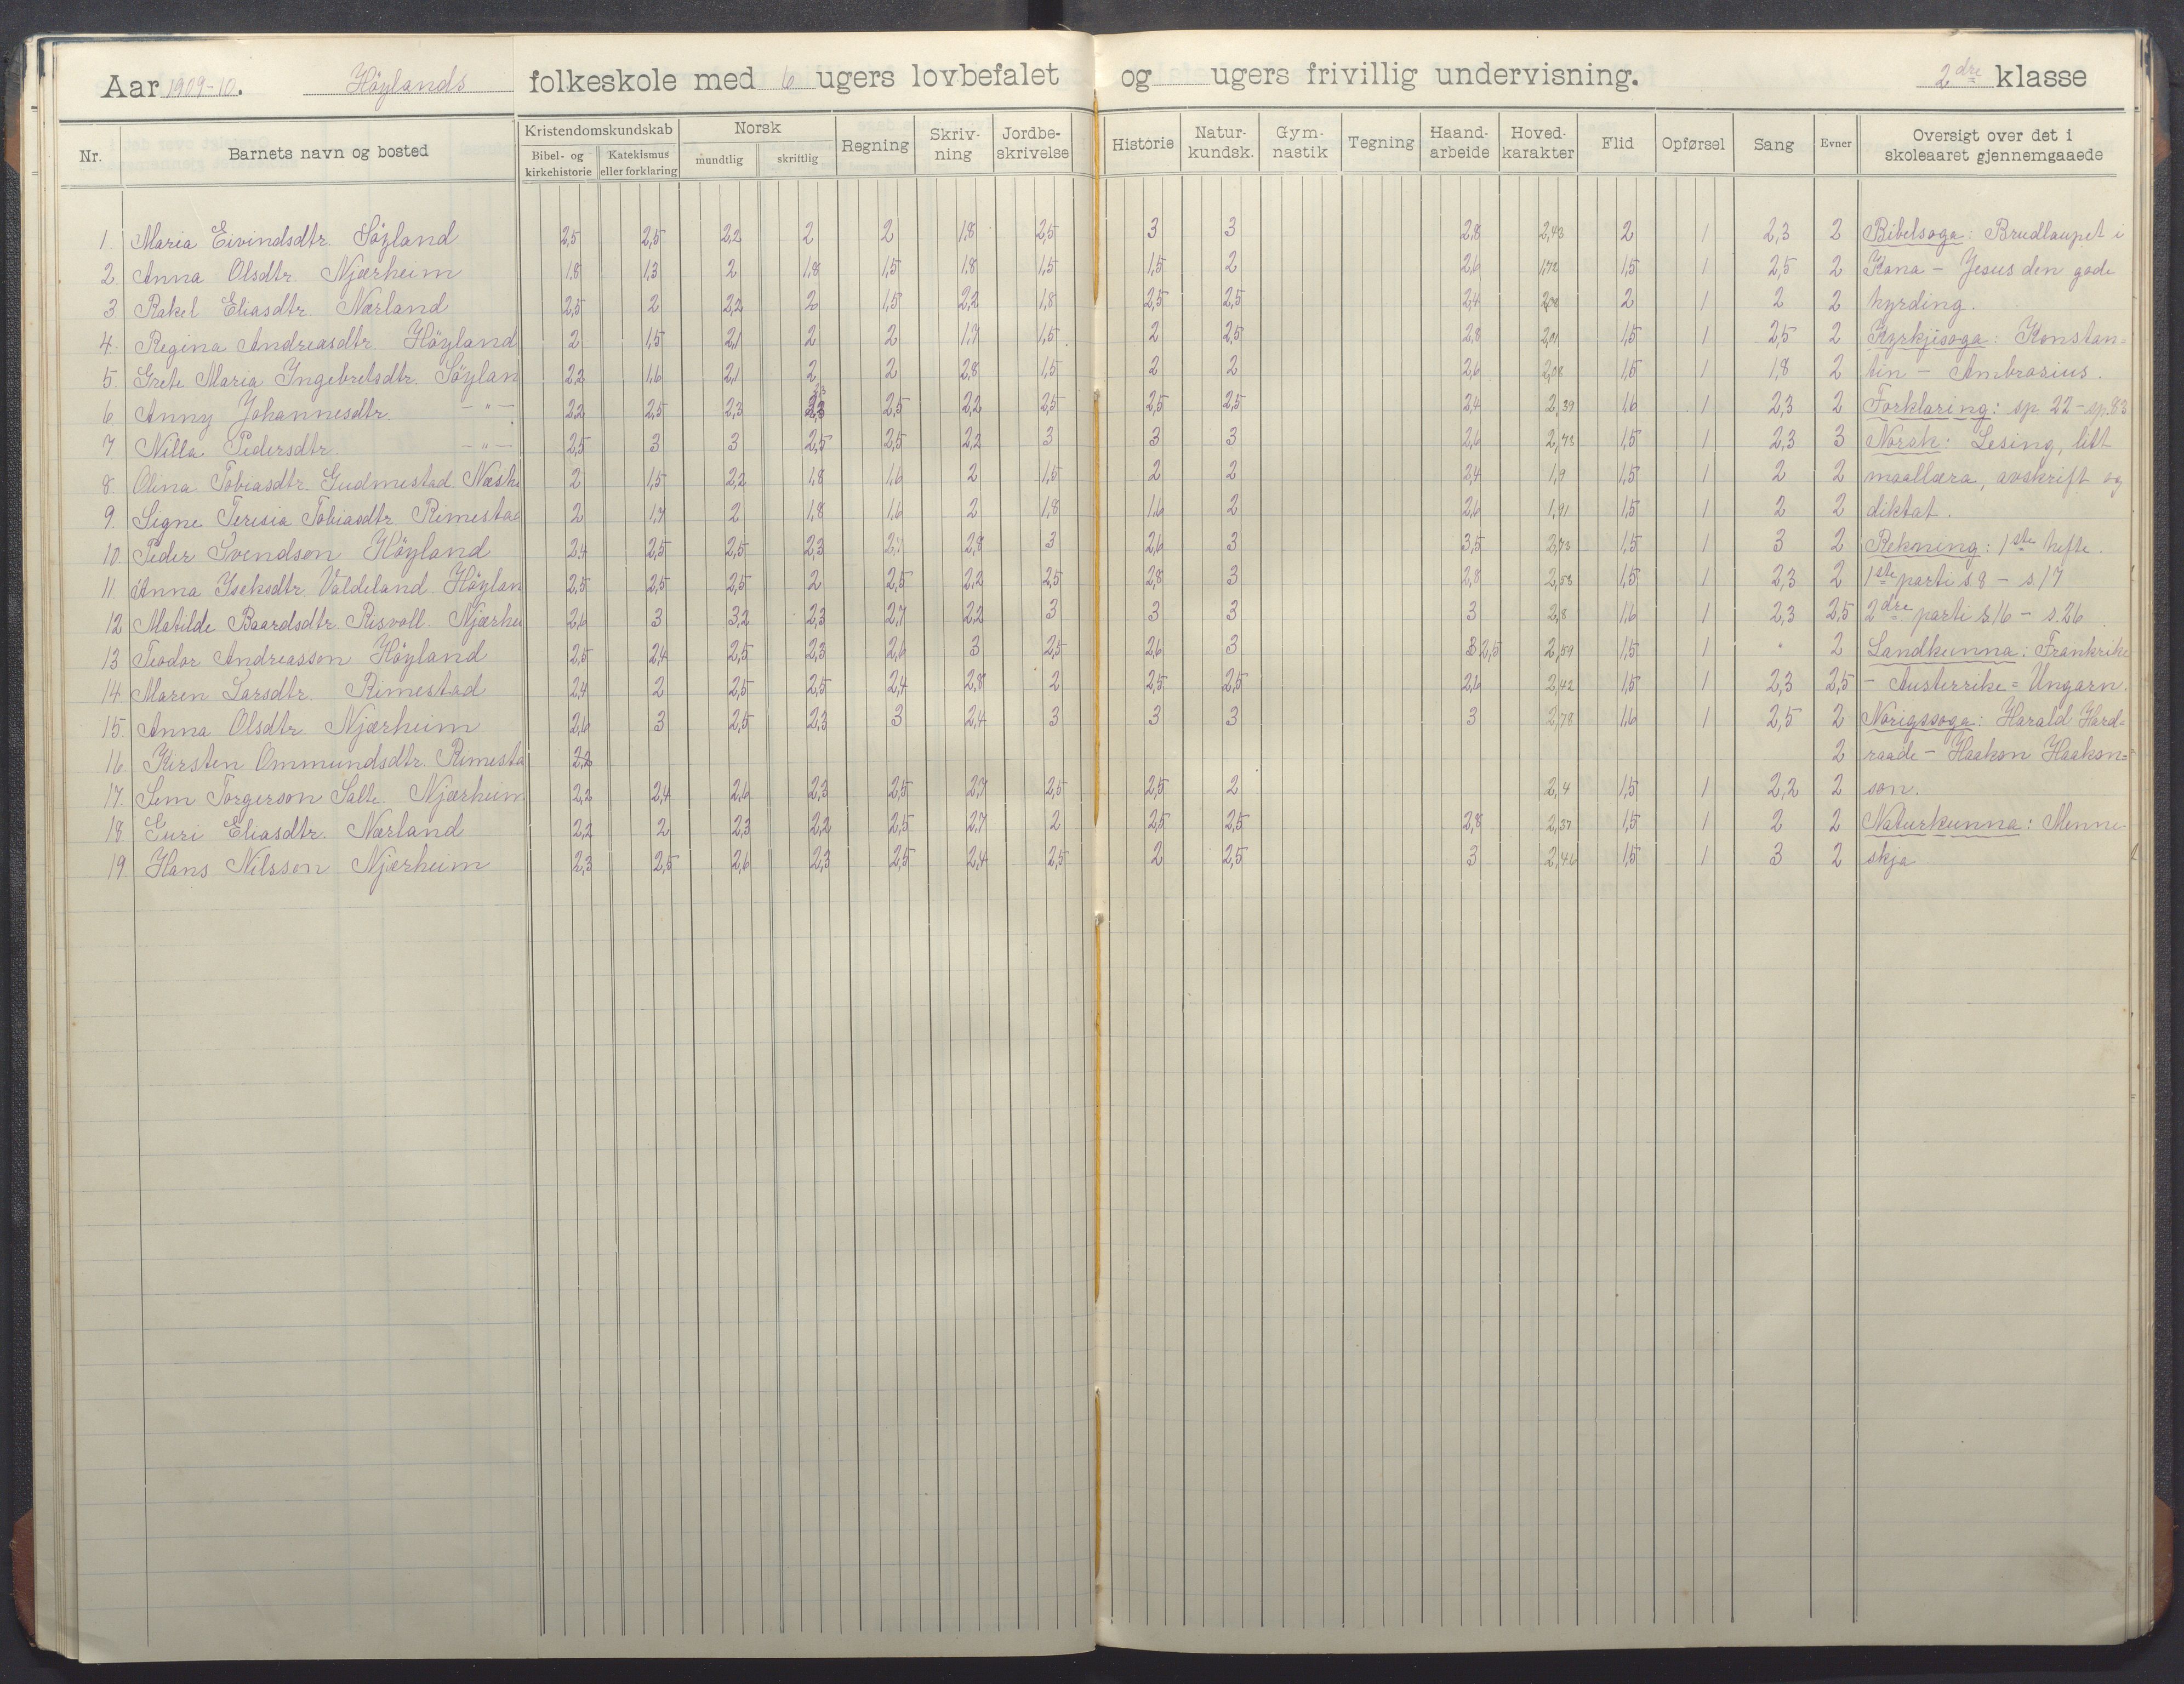 Aar 1909-10. Höylands folkeskole med 6 ugers lovbefalet og ugers frivillig undervisning. 2dre klasse
Nr. Barnets navn og bosted Kristendomskundskab Norsk Regning Skriv-ning Jordbe-skrivelse Historie Natur-kundsk. Gym-nastik Tegning Haand-arbeide Hoved-karakter Flid Opførsel Sang Evner Oversigt over det i skoleaaret gjennemgaaede
Bibel- og kirkehistorie Katekismus eller forklaring mundtlig skriftlig
1. Maria Eivindsdtr. Söyland 2,5 2,5 2,2 2 2 1,8 2,5 3 3 2,8 2,43 2 1 2,3 2 Bibelsoga: Brudlaupet i
2 Anna Olsdtr. Njærheim 1,8 1,3 2 1,8 1,5 1,8 1,5 1,5 2 2,6 1,78 1,5 1 2,5 2 Kana - Jesus den gode
3 Rakel Eliasdtr. Nærland 2,5 2 2,2 2 1,5 2,2 1,8 2,5 2,5 2,4 2 1 2 2 hyrding.
4. Regina Andreasdtr. Höyland 2 1,5 2,1 2 2 1,7 1,5 2 2,5 2,8 2,01 1,5 1 2,5 2 Kyrkjesoga: Konstan-
5. Grete Maria Ingebretsdtr. Söylan 2,2 1,6 2,1 2 2 2,8 1,5 2 2 2,6 2,08 1,5 1 1,8 2 tin - Ambrosius.
6. Anny Johannesdtr. -"- 2,2 2,5 2,3 2,3 2,5 2,2 2,5 2,5 2,5 2,4 2,39 1,6 1 2,3 2 Forklaring: sp. 22 - sp. 83
7 Nilla Pedersdtr. -"- 2,5 3 3 2,5 2,5 2,2 3 3 3 2,6 2,73 1,5 1 2,3 3 Norsk: Lesing, litt
8 Olina Tobiasdtr. Gudmestad. 2 1,5 2,2 1,8 1,6 2 1,5 2 2 2,4 1,9 1,5 1 2 2 maallæra, avskrift og
9. Signe Teresia Tobiasdtr. Rimesta 2 1,7 2 1,8 1,6 2 1,8 1,6 2 2,6 1,91 1,5 1 2 2 diktat.
10. Peder Svendson Höyland 2,4 2,5 2,5 2,3 2,7 2,8 3 2,6 3 3,5 2,73 1,5 1 3 2 Rekning: 1ste hefte.
11. Anna Iseksdtr. Valdeland. Höylan 2,5 2,5 2,5 2 2,5 2,2 2,5 2,8 3 2,8 2,53 1,5 1 2,3 2 1ste parti s. 8 - s. 17
12 Matilde Baardsdtr. Risvoll. Njærhei 2,6 3 3,2 2,3 2,7 2,2 3 3 3 3 2,8 1,6 1 2,3 2,5 2dre parti s. 16 - s. 26.
13 Teodor Andreasson Höyland 2,5 2,4 2,5 2,3 2,6 3 2,5 2,6 3 2,5 2,59 1,5 1 " 2 Landkunna: Frankrike
14 Maren Larsdtr. Rimestad 2,4 2 2,5 2,5 2,4 2,8 2 2,5 2,5 2,6 2,42 1,5 1 2,3 2,5 - Austerrike=Ungarn.
15. Anna Olsdtr. Njærheim 2,6 3 2,5 2,3 3 2,4 3 3 3 3 2,78 1,6 1 2,5 2 Norigssoga: Harald Hard-
16. Kirsten Ommundsdtr. Rimesta 2,2 2 raade - Haakon Haakon=
17. Sem Torgerson Salte. Njærheim 2,2 2,4 2,6 2,3 2,5 2,7 2,5 2,5 2 2,4 1,5 1 2,2 2 son.
18. Guri Eliasdtr. Nærland 2,2 2 2,3 2,2 2,5 2,7 2 2,5 2,5 2,8 2,37 1,5 1 2 2 Naturkunna: Menne-
19 Hans Nilsson Njærheim 2,3 2,5 2,6 2,3 2,5 2,4 2,5 2 2,5 3 2,46 1,5 1 3 2 skja